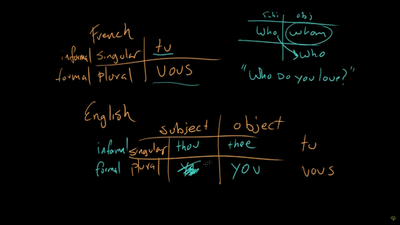 French
informal singular tu
formal plural vous
subj obj
who whom
who
"Who Do you love?"
English
subject object
informal singular thou thee tu
formal plural you vous